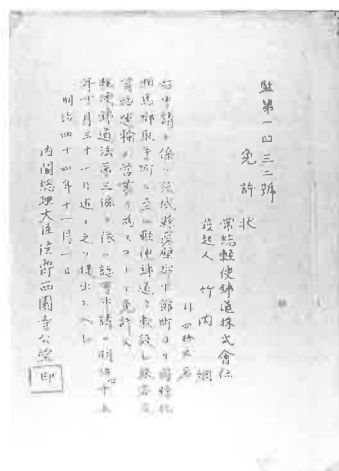 監第一四三二號
免許状
常総軽便鉄道株式會社
発起人 竹内 綱
外四拾
右申請ニ係ル茨城縣真壁郡下館町ヨリ同縣北
相馬郡取手町ニ至ル軽便鉄道ヲ敷設シ旅客及
貨物運輸ノ営業ヲ為スコトヲ免許ス
軽便鉄道法第三條ニ依ル認可申請ハ明治四十五
年十月三十一日迄ニ之ヲ提出スヘシ
明治四十四年十一月一日
内閣総理大臣侯爵西園寺公望
印